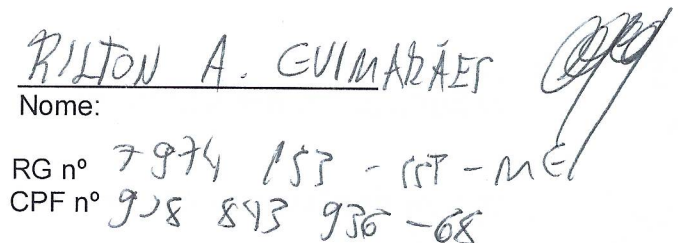 RILTON A. GUIMARÃES
Nome:
RG nº 7974 153 - SSP - MG
CPF nº 843 936 - 68